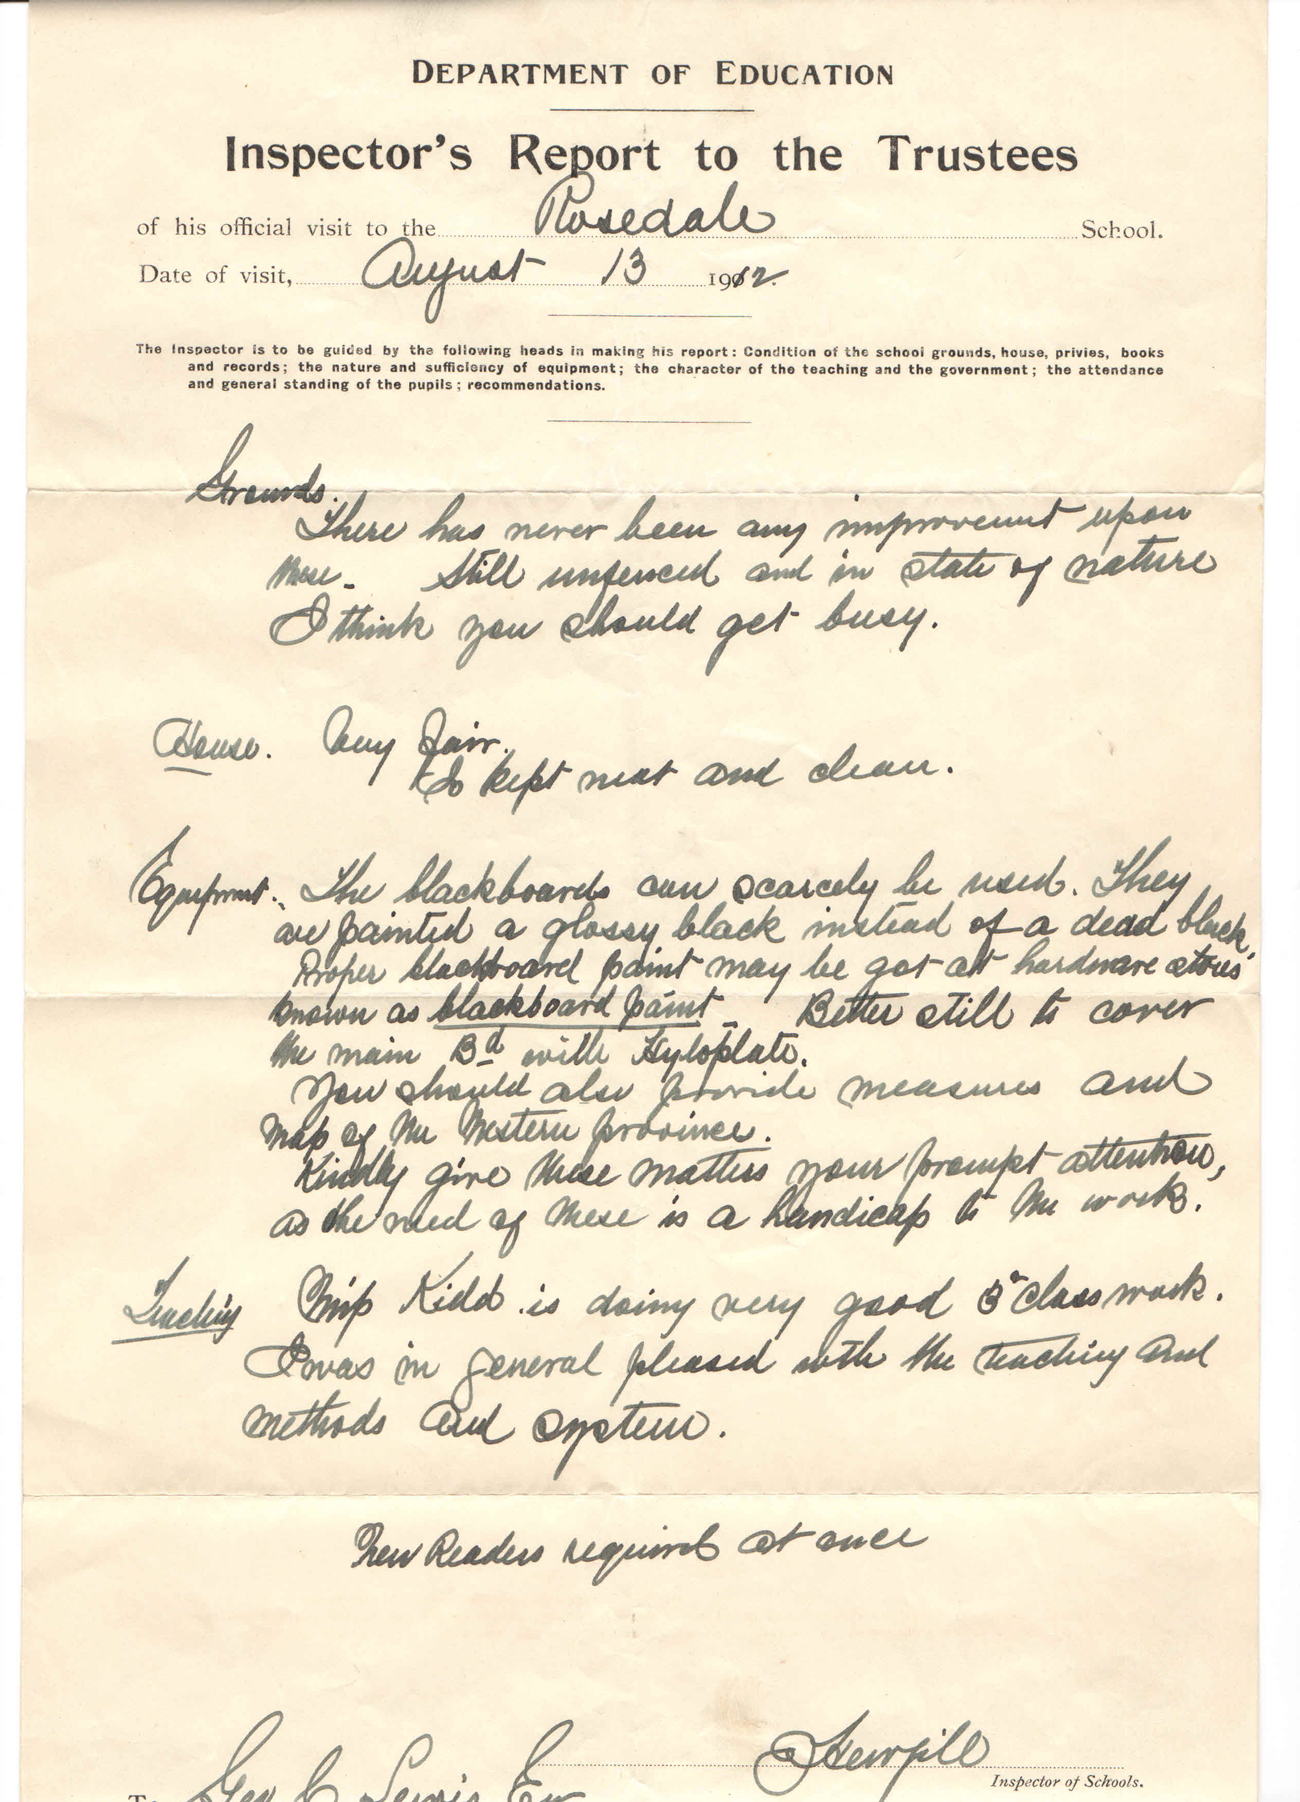 DEPARTMENT OF EDUCATION
Inspector's Report to the Trustees
of his official visit to the Rosedale School.
Date of visit, August 13 1912.
The Inspector is to be guided by the following heads in making his report: Condition of the school grounds, house, privies, books
and records; the nature and sufficiency of equipment; the character of the teaching and the government; the attendance
and general standing of the pupils; recommendations.
Grounds.
There has never been any improvement upon
these. Still unfenced and in state of nature
I think you should get busy.
House. Very fair.
Is kept neat and clean.
Equipment. The blackboards can scarcely be used. They
are painted a glossy black instead of a dead black.
Proper blackboard paint may be got at hardware stores
known as blackboard paint. Better still to cover
the main Bd with Hyloplate.
You should also provide measures and
map of the Western province.
Kindly give these matters your prompt attention,
as the need of these is a handicap to the work.
Teaching Miss Kidd is doing very good 3rd class work.
I was in general pleased with the teaching and
methods and system.
New Readers required at once
Hewgill
Inspector of Schools.
To Geo C Lewis